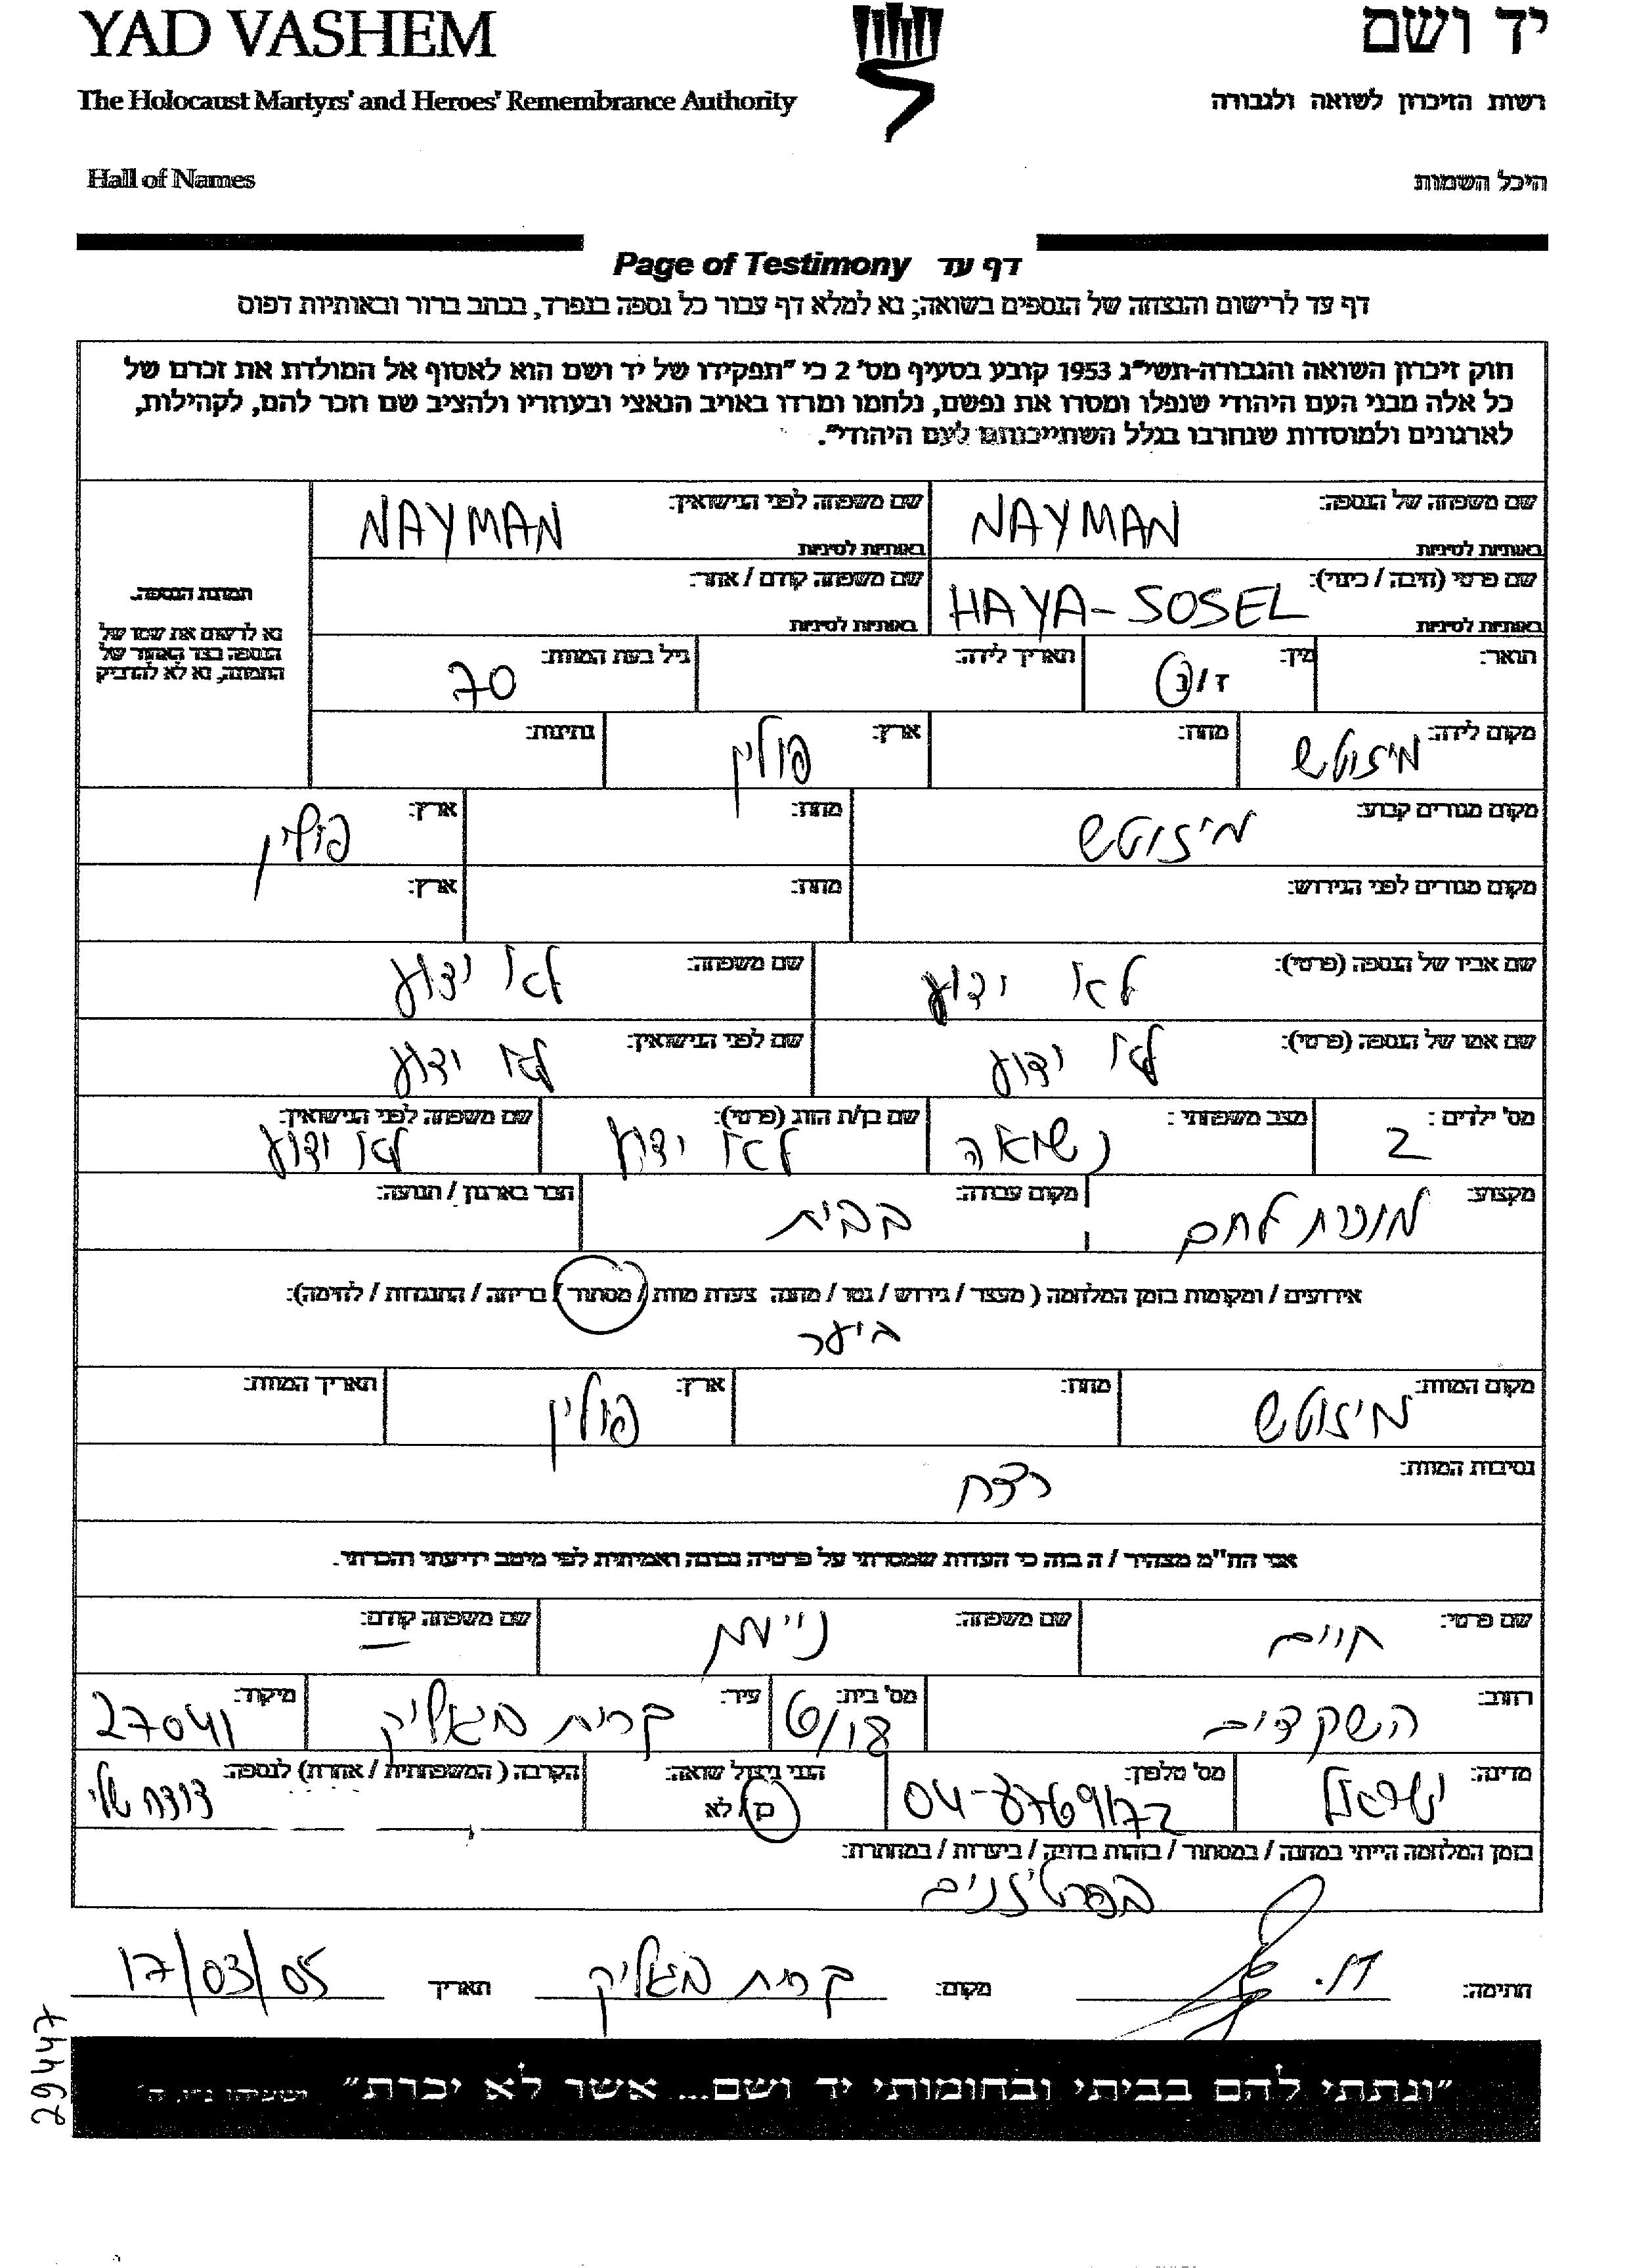 YAD VASHEM
יד ושם
The Holocaust Martyrs' and Heroes' Remembrance Authority
רשות הזיכרון לשואה ולגבורה
Hall of Names
היכל השמות
Page of Testimony דף עד
דף עד לרישום והנצחה של הנספים בשואה; נא למלא דף עבור כל נספה בנפרד, בכתב ברור ובאותיות דפוס
חוק זיכרון השואה והגבורה-תשי"ג 1953 קובע בסעיף מס' 2 כי "תפקידו של יד ושם הוא לאסוף אל המולדת את זכרם של
כל אלה מבני העם היהודי שנפלו ומסרו את נפשם, נלחמו ומרדו באויב הנאצי ובעוזריו ולהציב שם וזכר להם, לקהילות,
לארגונים ולמוסדות שנחרבו בגלל השתייכותם לעם היהודי".
שם משפחה של הנספה: NAYMAN שם משפחה לפני הנישואין: NAYMAN
באותיות לטיניות באותיות לטיניות
שם פרטי (חיבה / כינוי): HAYA-SOSEL שם משפחה קודם / אחר:
באותיות לטיניות באותיות לטיניות
תמונת הנספה.
נא לרשום את שמו של
הנספה בצד האחור של
התמונה, נא לא להדביק
תואר: מין: ז / נ תאריך לידה: גיל בעת המוות: 70
מקום לידה: מיזוטש מחוז: ארץ: פולין נתינות:
מקום מגורים קבוע: מיזוטש מחוז: ארץ: פולין
מקום מגורים לפני הגירוש: מחוז: ארץ:
שם אביו של הנספה (פרטי): לא ידוע שם משפחה: לא ידוע
שם אמו של הנספה (פרטי): לא ידוע שם לפני הנישואין: לא ידוע
מס' ילדים: 2 מצב משפחתי: נשואה שם בן/ת הזוג (פרטי): לא ידוע שם משפחה לפני הנישואין: לא ידוע
מקצוע: מוכרת לחם מקום עבודה: בבית חבר בארגון / תנועה:
אירועים / ומקומות בזמן המלחמה ( מעצר / גירוש / גטו / מחנה צעדת מוות / מסתור / בריחה / התנגדות / לחימה):
ביער
מקום המוות: מיזוטש מחוז: ארץ: פולין תאריך המוות:
נסיבות המוות: רצח
אני הח"מ מצהיר / ה בזה כי העדות שמסרתי על פרטיה נכונה ואמיתית לפי מיטב ידיעתי והכרתי.
שם פרטי: חיים שם משפחה: ניימן שם משפחה קודם: —
רחוב: השקדים מס' בית: 6/18 עיר: קרית ביאליק מיקוד: 27041
מדינה: ישראל מס' טלפון: 04-8769172 הנני ניצול שואה: כן / לא הקרבה ( המשפחתית / אחרת) לנספה: דודה שלי
בזמן המלחמה הייתי במחנה / במסתור / בזהות בדויה / ביערות / במחתרת:
בפרטיזנים
חתימה: מקום: קרית ביאליק תאריך 17/03/05
29447
"ונתתי להם בביתי ובחומותי יד ושם... אשר לא יכרת" ישעיהו נ"ו, ה'